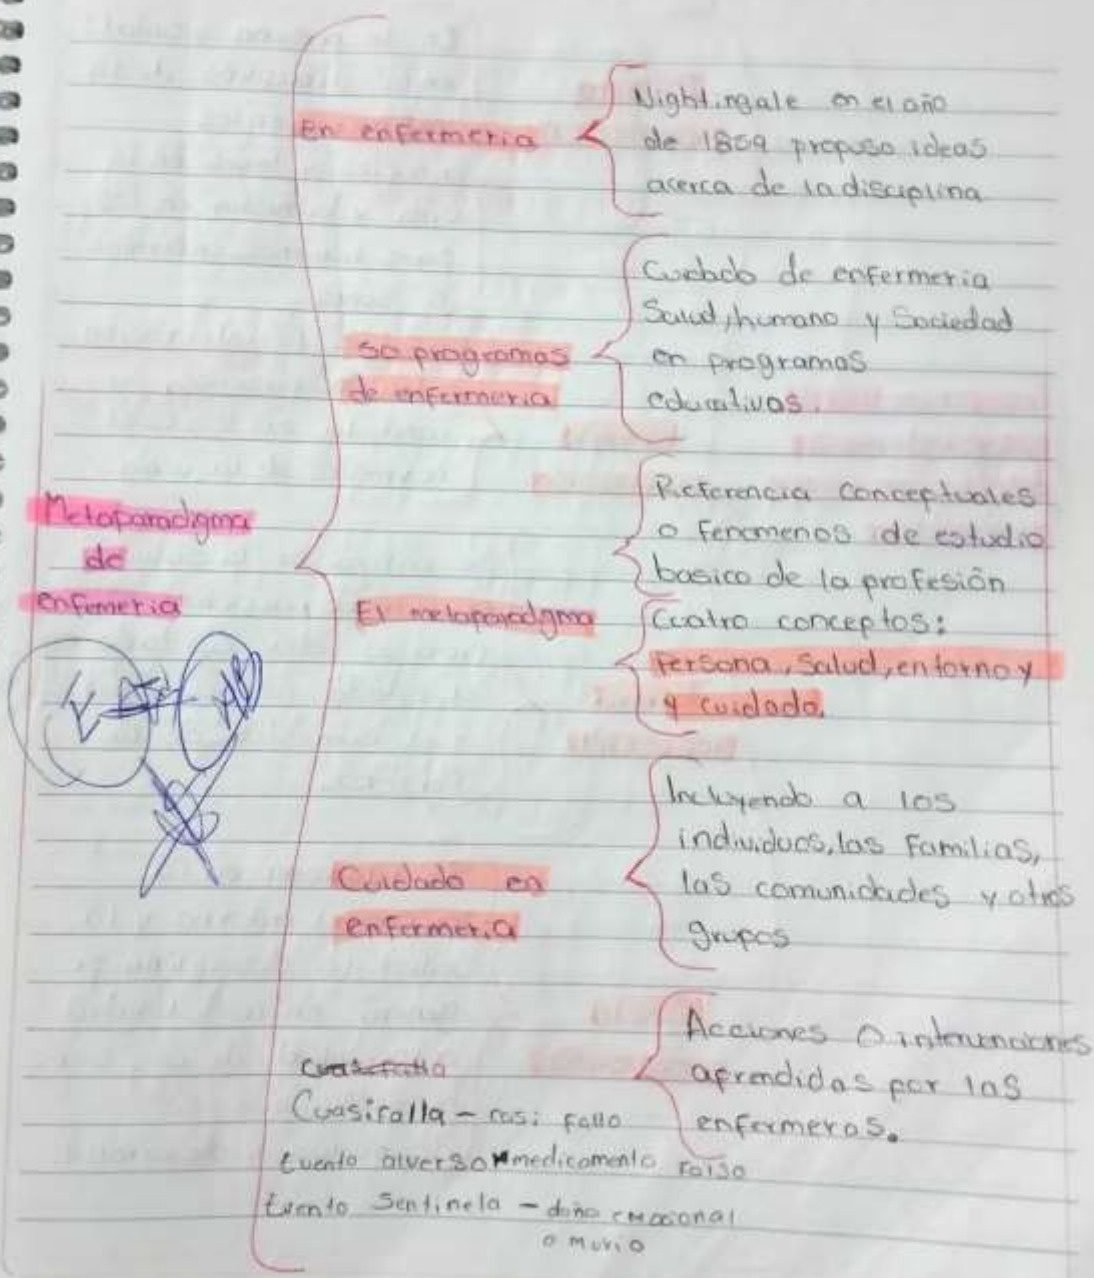 En enfermeria
Nightingale en el año
de 1859 propuso ideas
acerca de la disciplina
50 programas
de enfermeria
Cuidado de enfermeria
Salud, humano y Sociedad
en programas
educativos.
Metaparadigma
de
enfemeria
El metaparadgma
Referencia conceptuales
o fenomenos de estudio
basico de la profesión
Cuatro conceptos:
Persona, Salud, entorno y
y cuidado.
Cuidado en
enfermeria
Incluyendo a los
individuos, las Familias,
las comunidades y otros
grupos
Acciones O intervenciones
aprendidas por las
enfermeras.
Cuasifalla - casi fallo
Evento alverso medicamento falso
Evento Sentinela - daño emocional
o murio